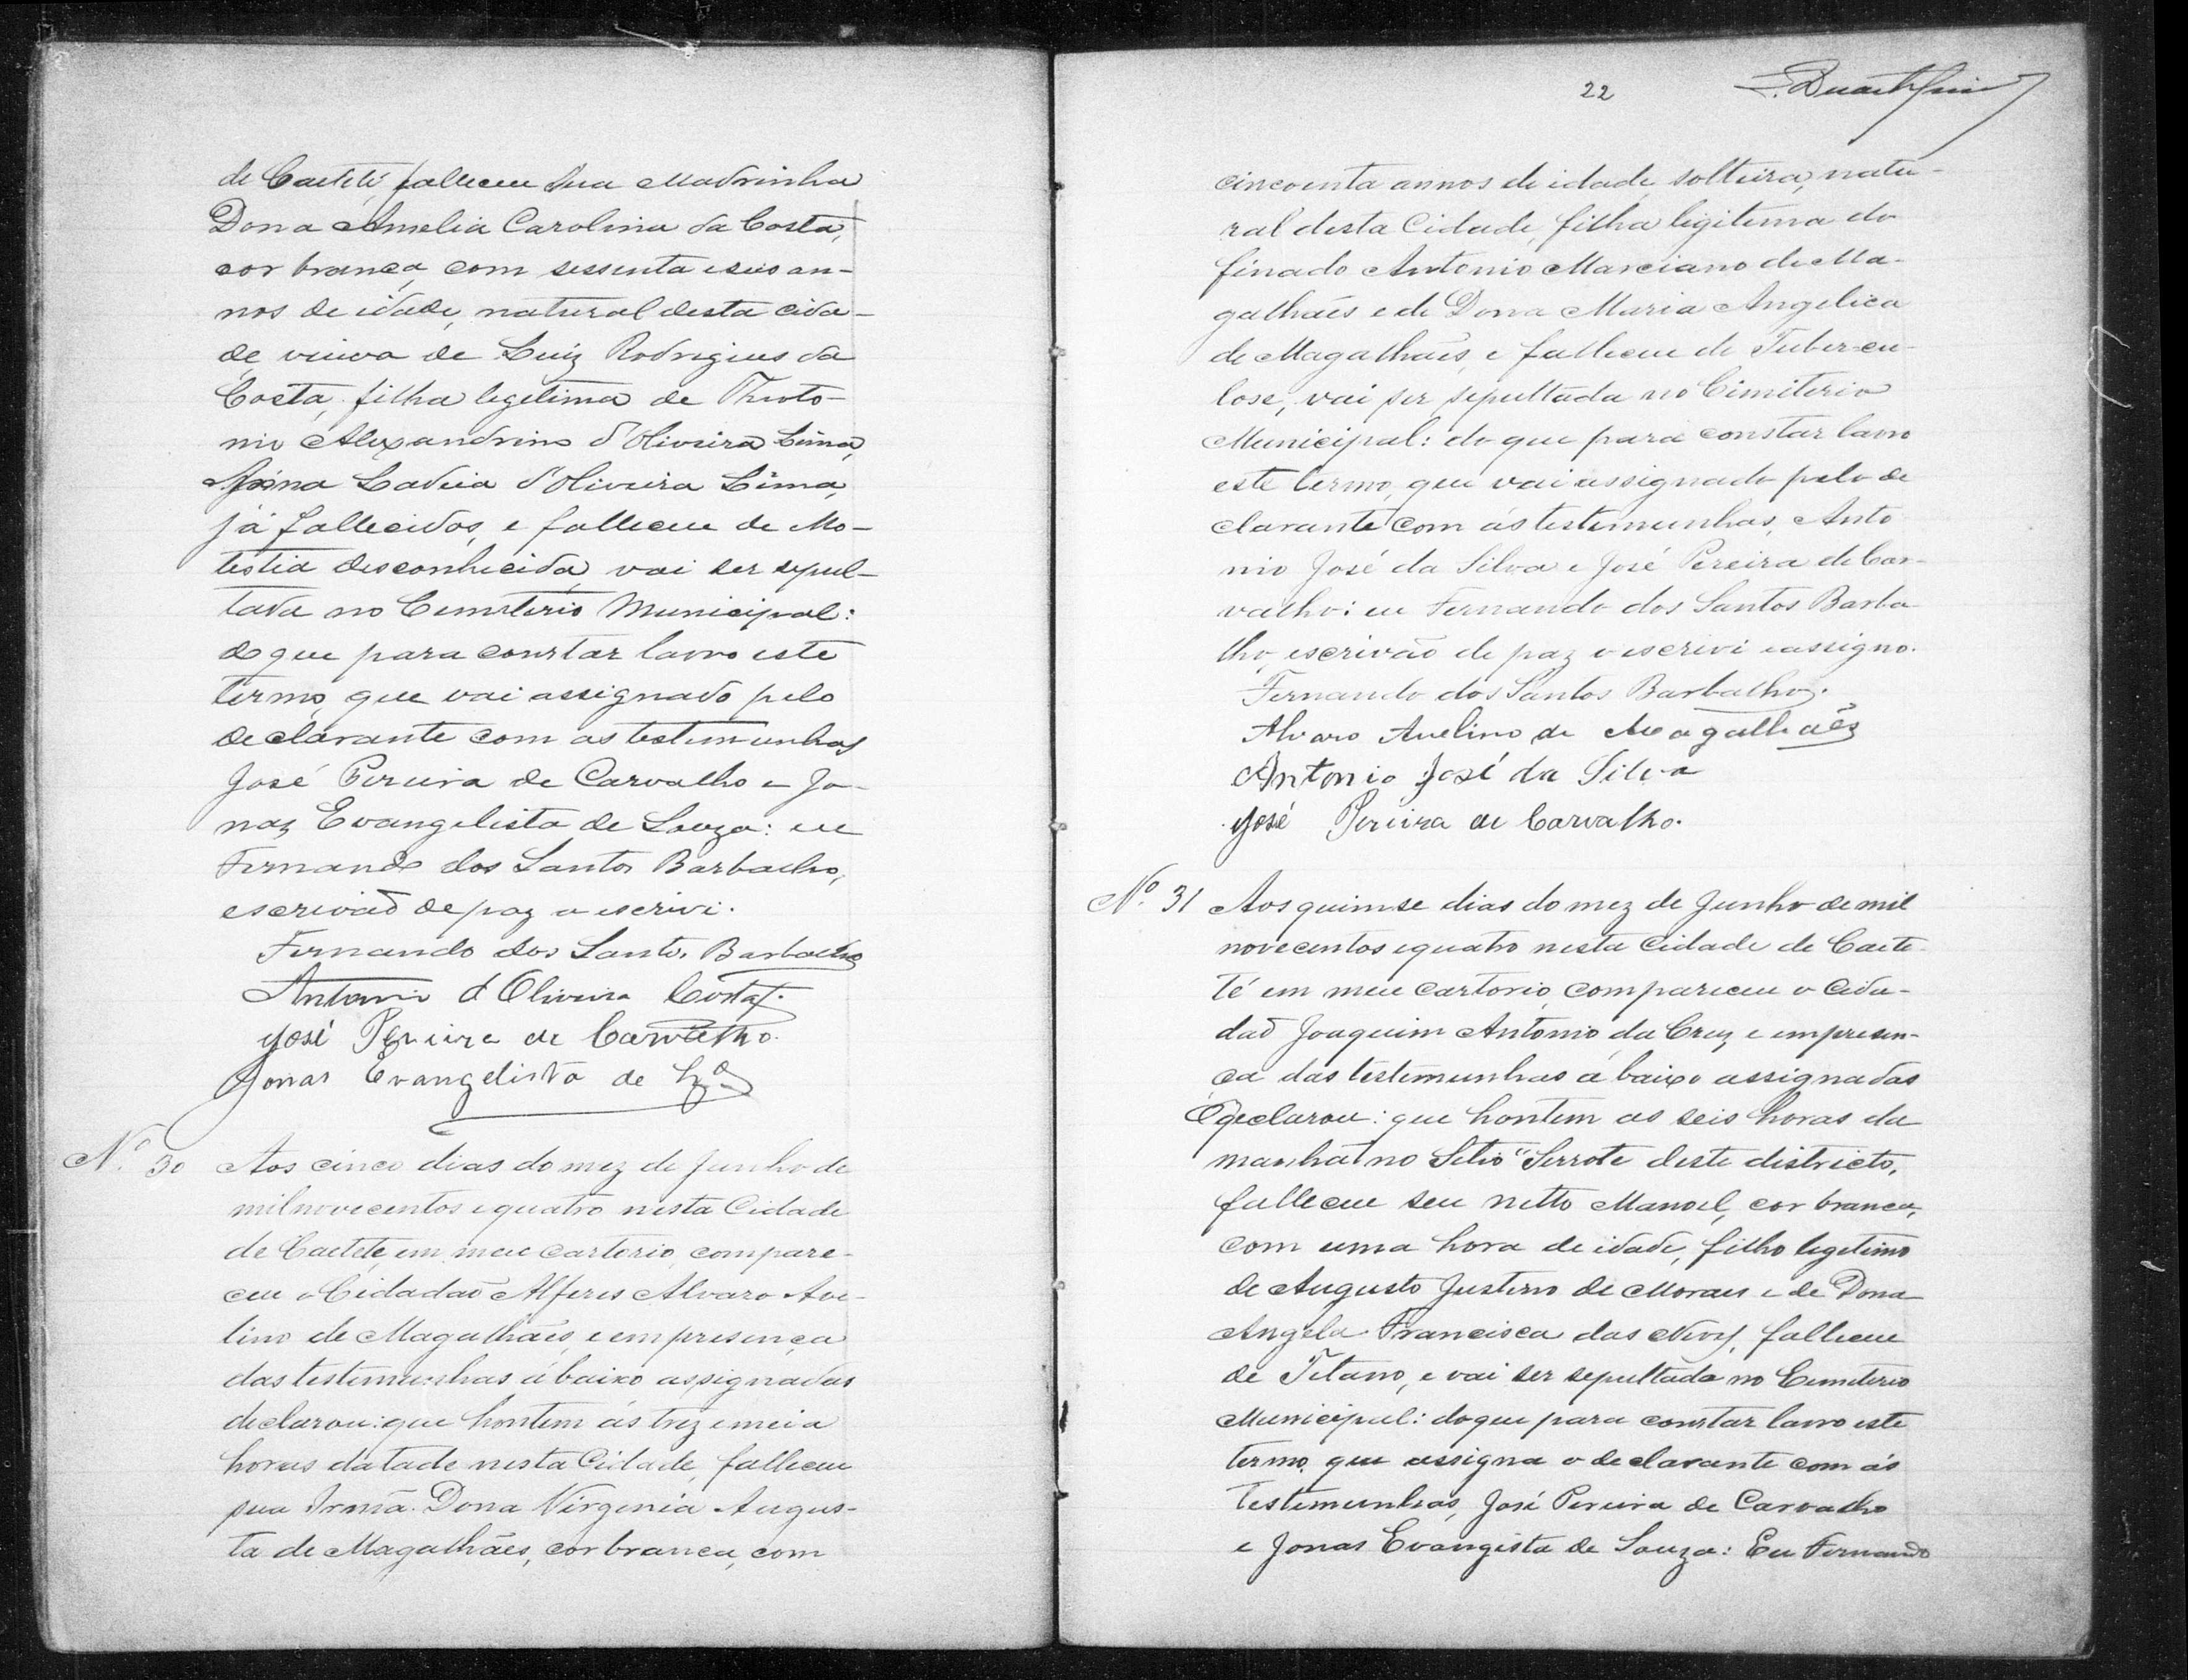 de Caetité, falleceu sua Madrinha
Dona Amelia Carolina da Costa,
cor branca, com sessenta e seis an-
nos de idade, natural desta cida-
de, viuva de Luiz Rodrigues da
Costa, filha legitima de Theoto-
nio Alexandrino d'Oliveira Lima,
Ladeia d'Oliveira Lima,
já fallecidos, e falleceu de Mo-
lestia desconhecida, vai ser sepul-
tada no Cemiterio Municipal:
do que para constar lavro este
termo, que vai assignado pelo
declarante com as testemunhas
José Pereira de Carvalho e Jo-
nas Evangelista de Souza: eu
Fernando dos Santos Barbalho,
escrivaõ de paz o escrivi.
Fernando dos Santos Barbalho
Antonio d'Oliveira Costa.
José Pereira de Carvalho.
Jonas Evangelista de
Nº 30 Aos cinco dias do mez de Junho de
mil novecentos e quatro nesta Cidade
de Caetete, em meu cartorio, compare-
ceu o Cidadaõ Alferes Alvaro Ave-
lino de Magalhães, e em presença
das testemunhas á baixo assignadas
declarou: que hontem ás trez e meia
horas da tade nesta Cidade, falleceu
sua Irmã Dona Virginia Augus-
ta de Magalhães, cor branca, com
22
cincoenta annos de idade, solteira, natu-
ral desta Cidade, filha legitima do
finado Antonio Marciano de Ma-
galhaẽs e de Dona Maria Angelica
de Magalhães, e falleceu de Tubercu-
lose, vai ser sepultada no Cimiterio
Municipal: do que para constar lavro
este termo, que vai assignado pelo de
clarante com ás testemunhas, Anto
nio José da Silva e José Pereira de Car-
valho: eu Fernando dos Santos Barba
lho, escrivão de paz o escrivi e assigno.
Fernando dos Santos Barbalho.
Alvaro Avelino de Magalhães
Antonio José da Silva
José Pereira de Carvalho.
Nº 31 Aos quimse dias do mez de Junho de mil
novecentos e quatro nesta Cidade de Caete-
té em meu cartorio, compareceu o Cida-
daõ Joaquim Antonio da Cruz e em presen-
ca das testemunhas a baixo assignadas
declarou: que hontem as seis horas da
manhaã no Sitio "Serrote deste districto,
falleceu seu netto Manoel, cor branca,
com uma hora de idade, filho legitimo
de Augusto Justino de Moraes e de Dona
Angela Francisca das Neves, falleceu
de Titano, e vai ser sepultado no Cemiterio
Municipal: do que para constar lavro este
termo, que assigna o declarante com ás
testemunhas, José Pereira de Carvalho
e Jonas Evangista de Souza: Eu Fernando